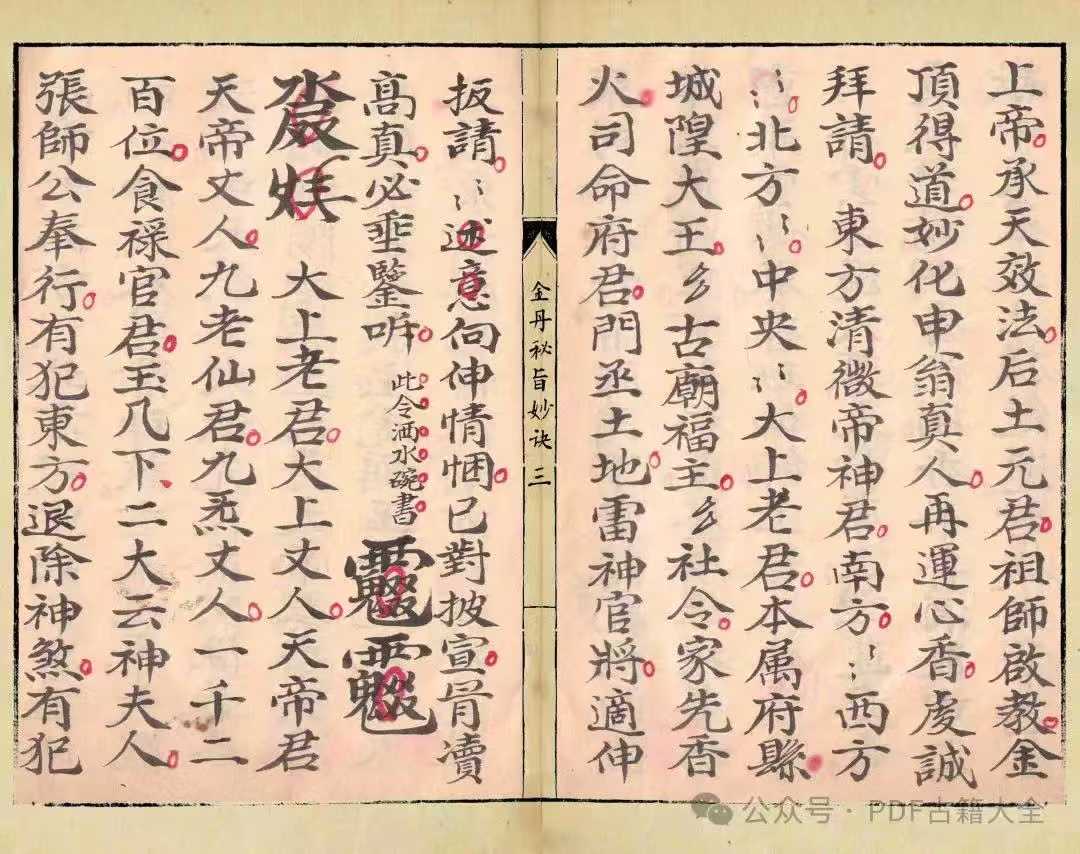 上帝承天效法后土元君祖師啟教金
頂得道妙化申翁真人再運心香虔誠
拜請東方清微帝神君南方⺀西方
⺀北方⺀中央⺀大上老君本属府縣
城隍大王乡古廟福主乡社令家先香
火司命府君門丞土地雷神官將適伸
金丹秘旨妙诀 三
扳請⺀述意向伸情悃已對披宣冐瀆
高真必垂鑒听此令洒水碗書
大上老君大上丈人天帝君
天帝丈人九老仙君九炁丈人一千二
百位食禄官君玉几下二大云神夫人
張師公奉行有犯東方退除神煞有犯
公众号·PDF古籍大全